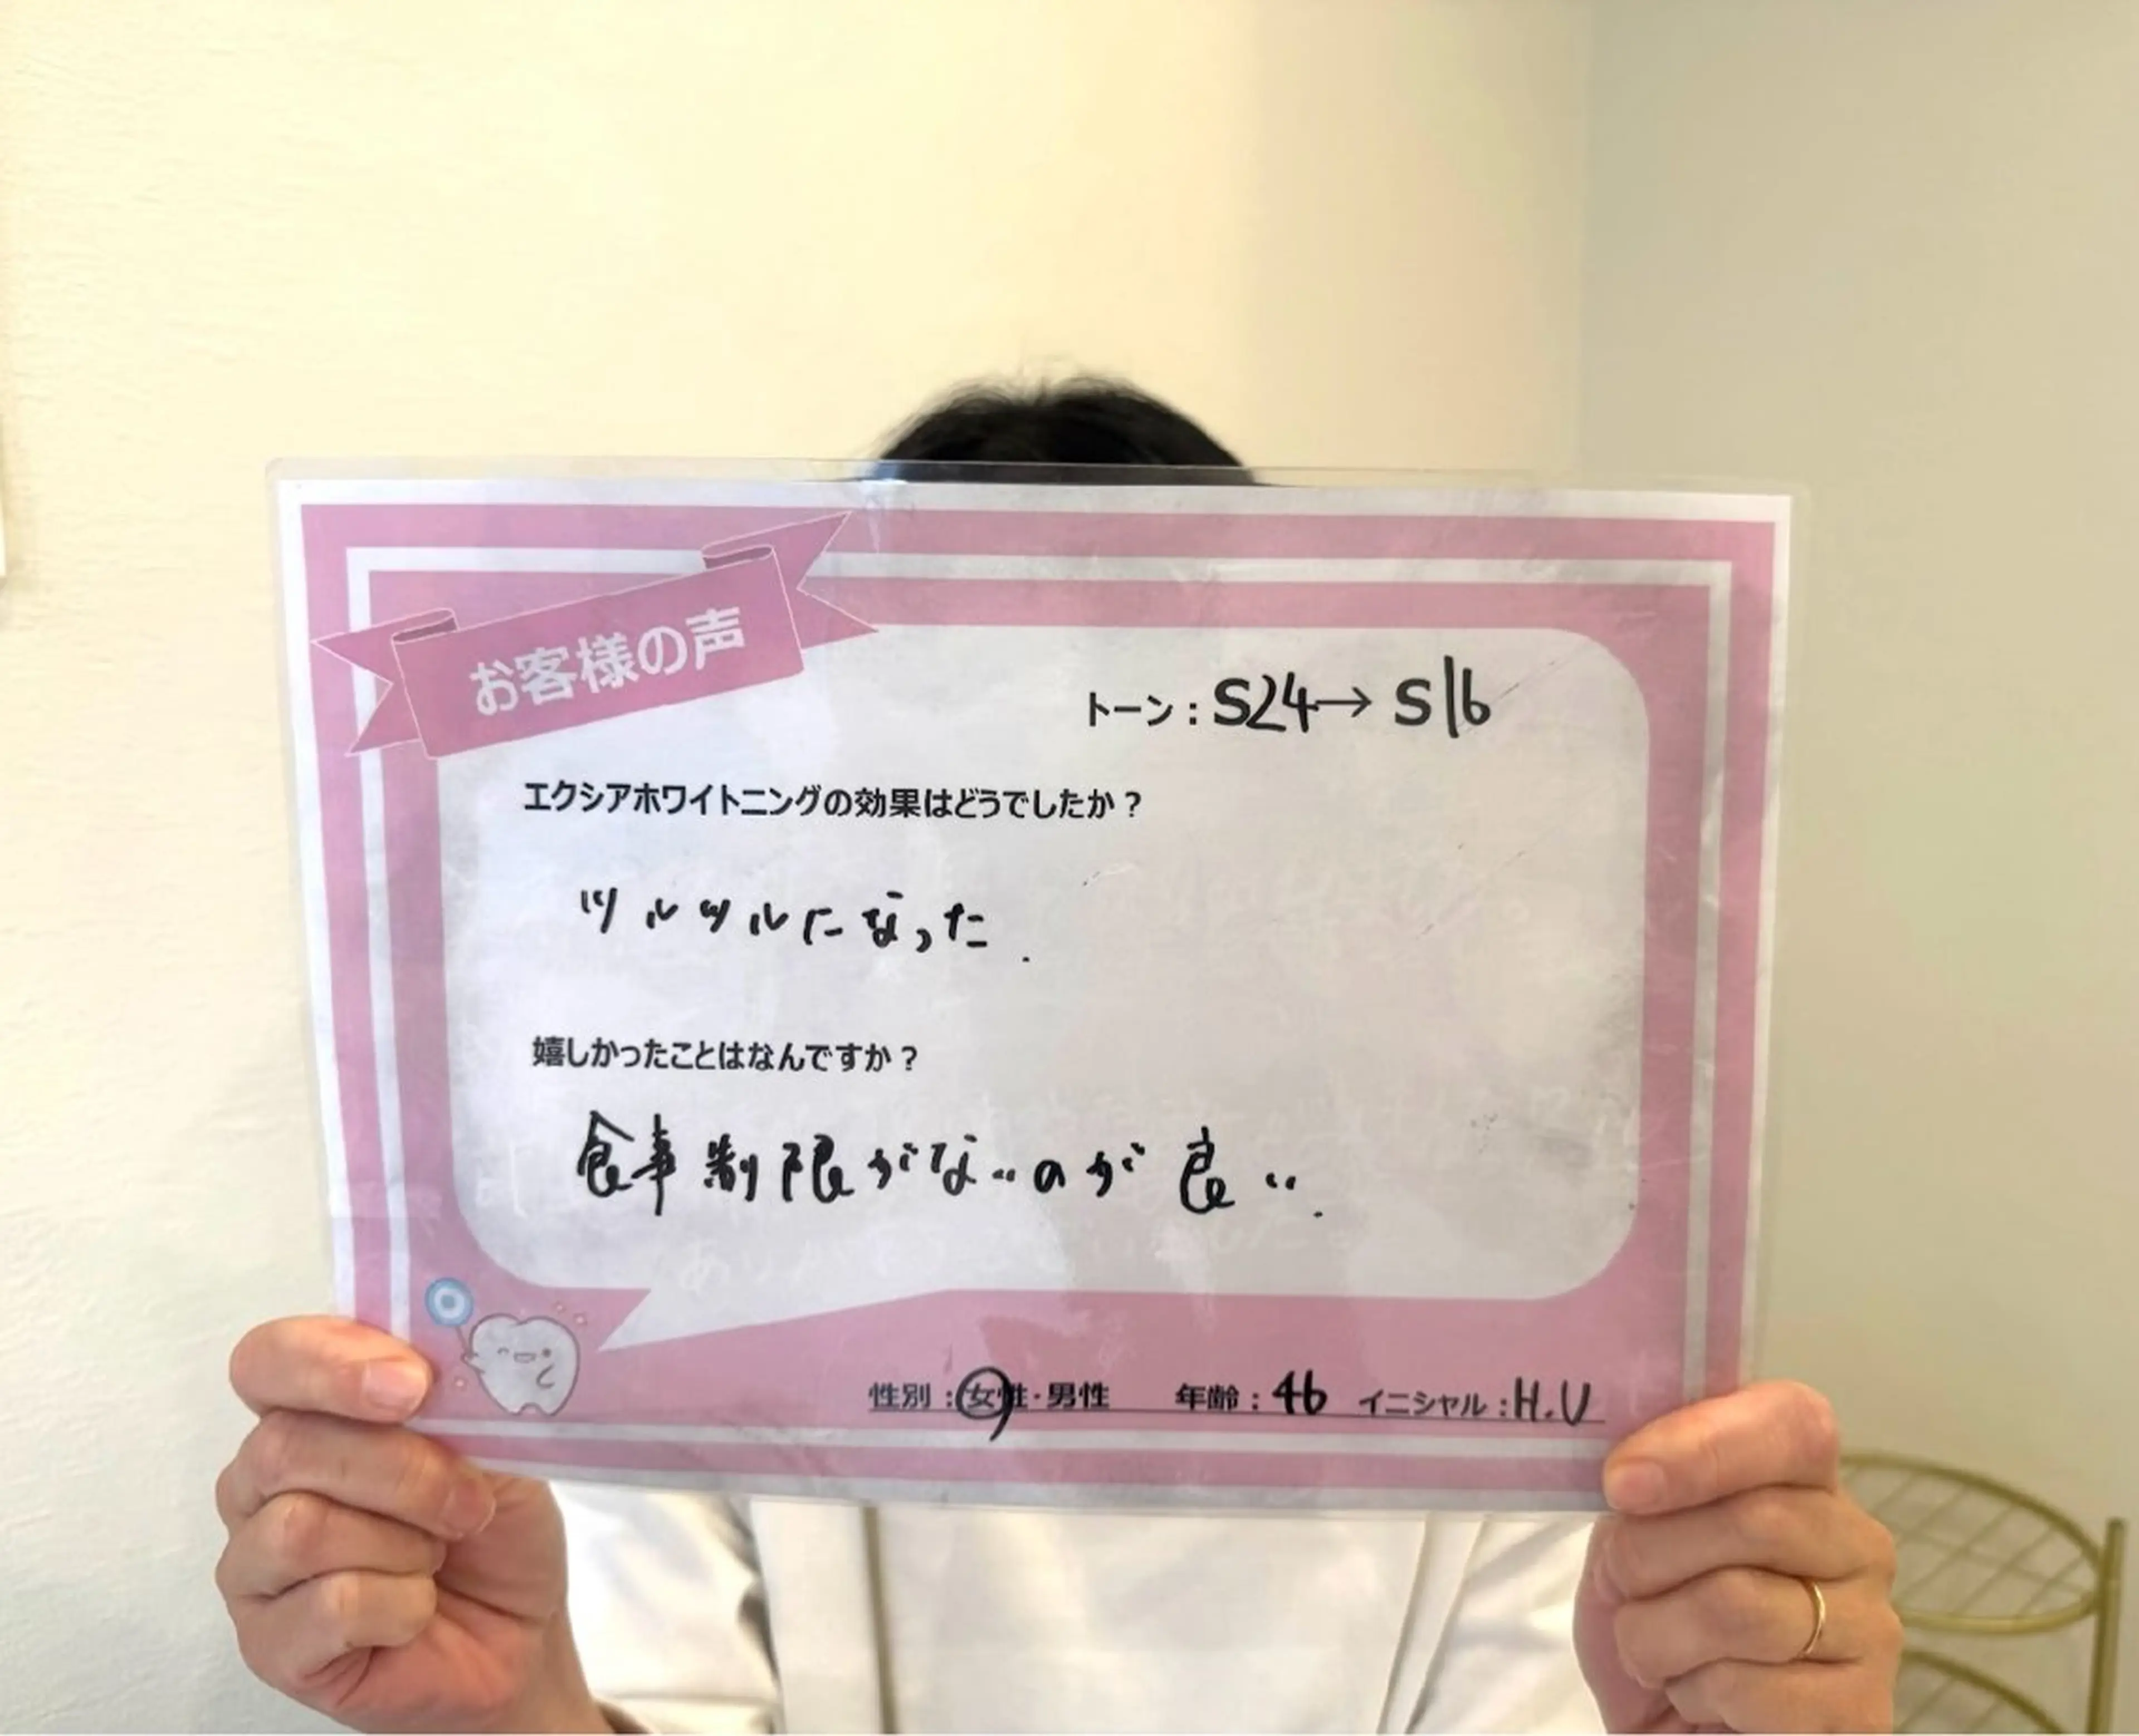 お客様の声
トーン：S24→S16
エクシアホワイトニングの効果はどうでしたか？
ツルツルになった.
嬉しかったことはなんですか？
食事制限がないのが良い.
性別：女性・男性　年齢：46　イニシャル：H.U